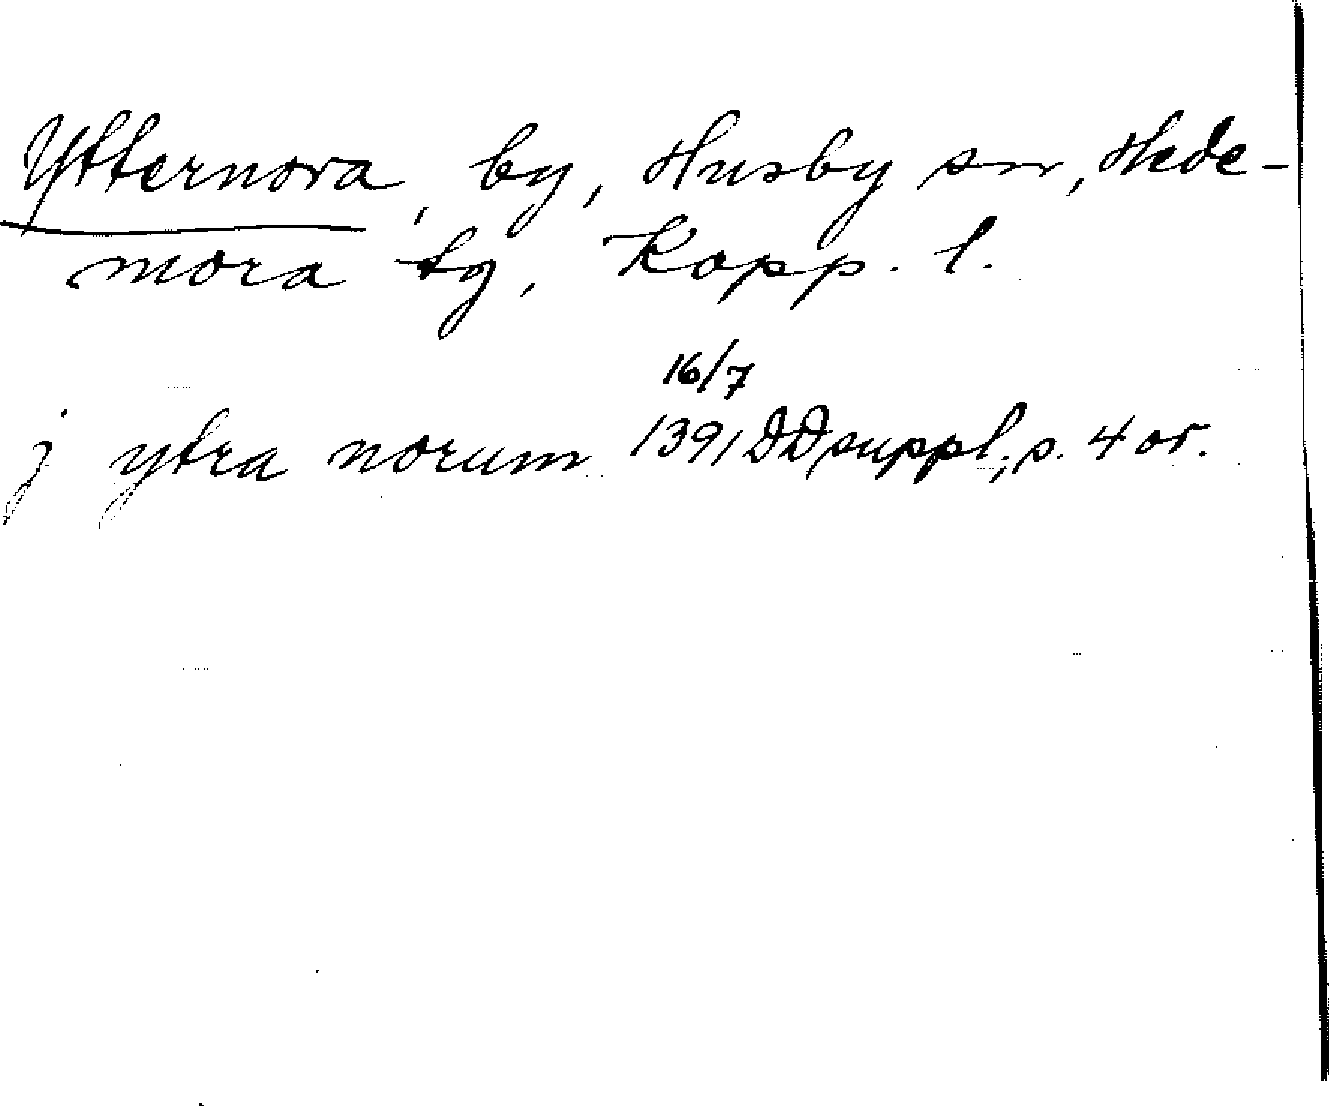 Ytternora, by, Husby sn, Hede-
mora tg, Kopp. l.
16/7
j ytra norum 1391 DD suppl., s. 4 or.